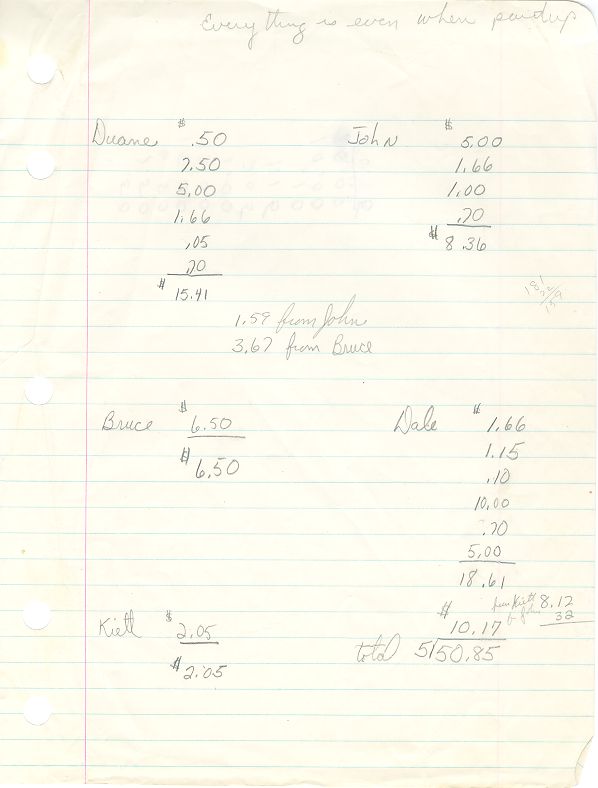 Everything is even when paid up
Duane $ .50
7.50
5.00
1.66
.05
.70
$ 15.41
1.59 from John
3.67 from Bruce
John $ 5.00
1.66
1.00
.70
$ 8.36
Bruce $ 6.50
$ 6.50
Dale $ 1.66
1.15
.10
10.00
.70
5.00
18.61
8.12
32
$ 10.17
total 5/50.85
Kiett $ 2.05
$ 2.05